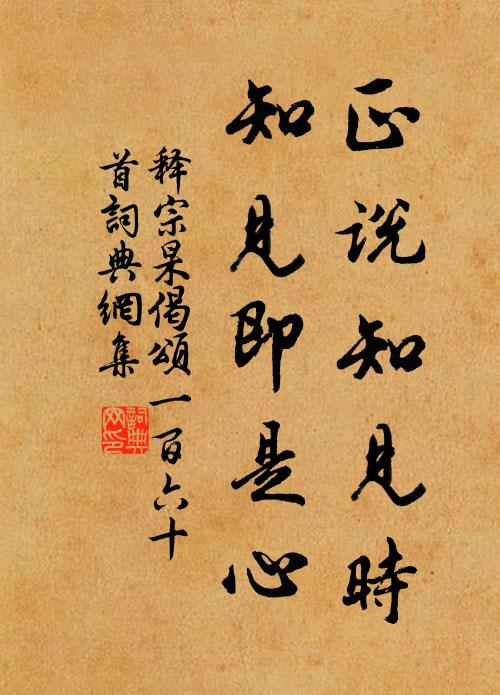 正说知见時
知见即是心
释宗杲偈頌一百六十
首詞典網集
詞典
网印